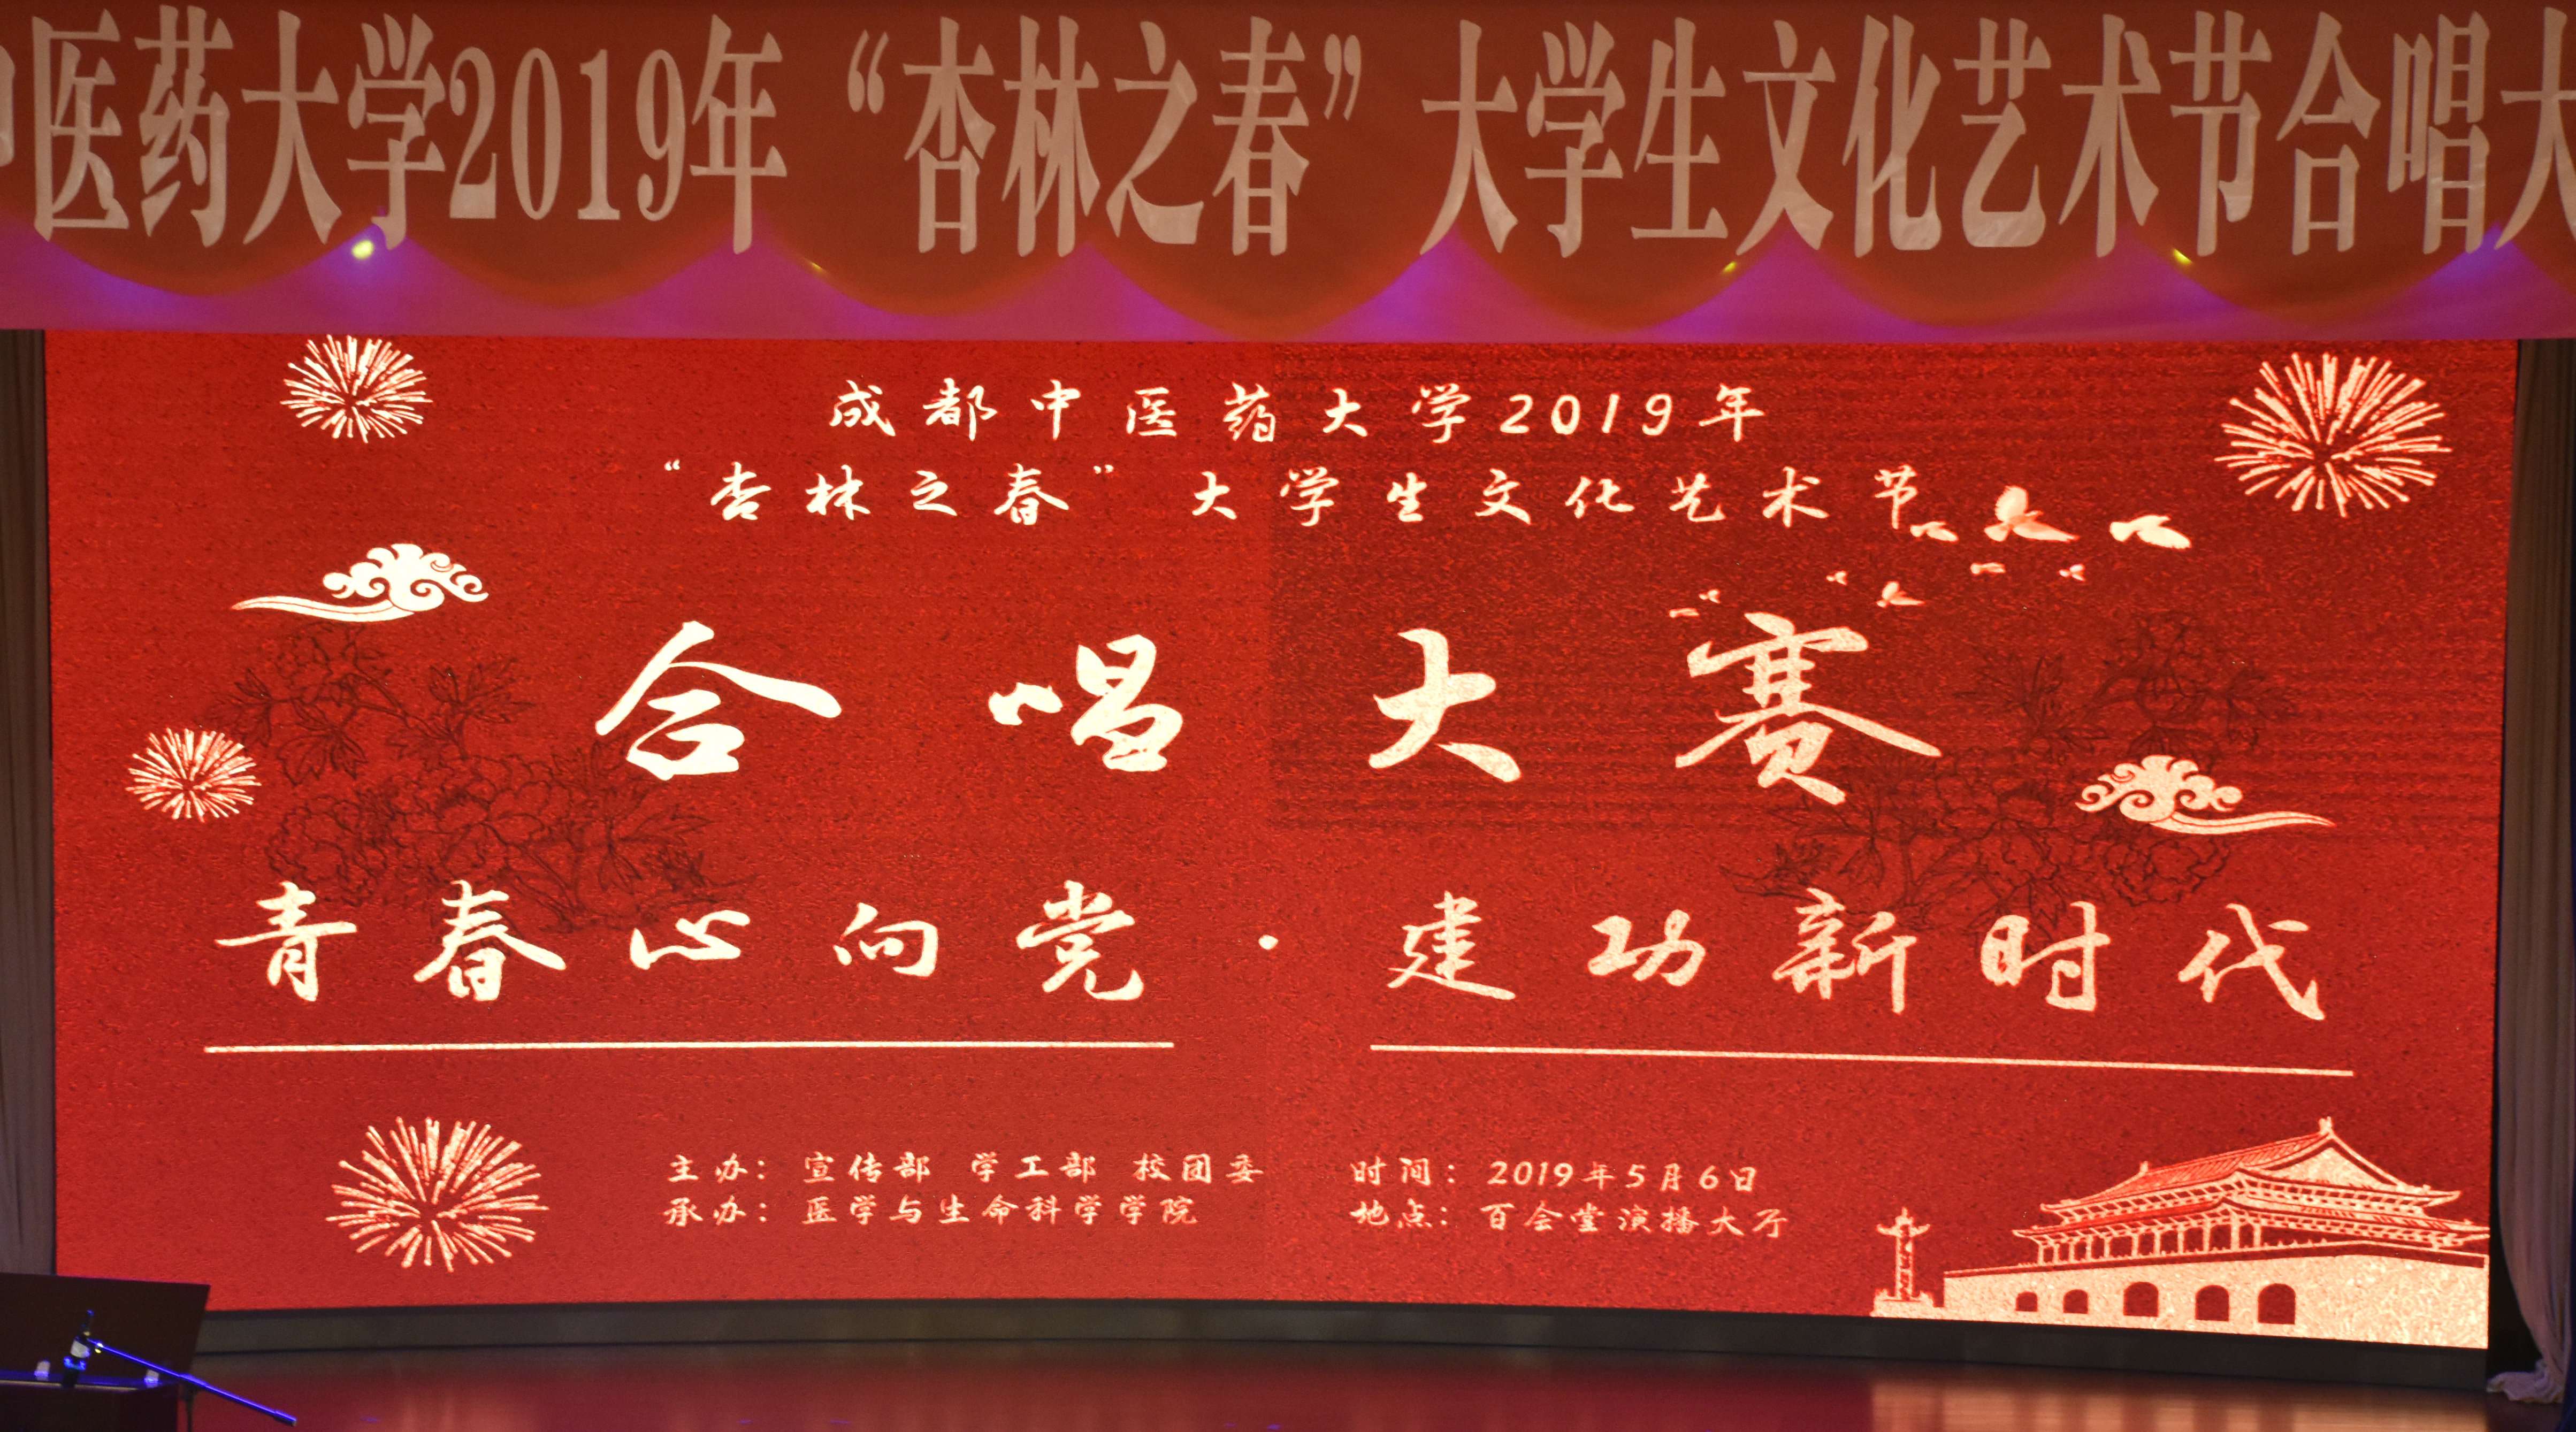 中医药大学2019年“杏林之春”大学生文化艺术节合唱大
成都中医药大学2019年
“杏林之春”大学生文化艺术节
合唱大赛
青春心向党·建功新时代
主办：宣传部 学工部 校团委
承办：医学与生命科学学院
时间：2019年5月6日
地点：百会堂演播大厅